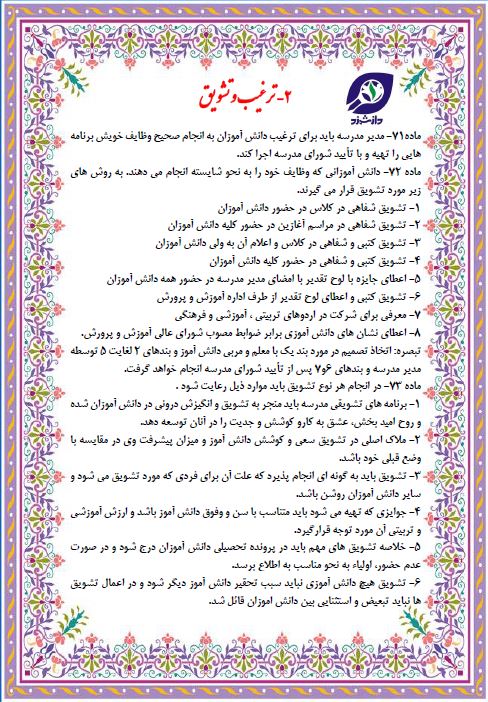 ۲- ترغیب و تشویق
دانشزد
ماده۷۱- مدیر مدرسه باید برای ترغیب دانش آموزان به انجام صحیح وظایف خویش برنامه
هایی را تهیه و با تأیید شورای مدرسه اجرا کند.
ماده ۷۲- دانش آموزانی که وظایف خود را به نحو شایسته انجام می دهند. به روش های
زیر مورد تشویق قرار می گیرند.
۱- تشویق شفاهی در کلاس در حضور دانش آموزان
۲- تشویق شفاهی در مراسم آغازین در حضور کلیه دانش آموزان
۳- تشویق کتبی و شفاهی در کلاس و اعلام آن به ولی دانش آموزان
۴- تشویق کتبی و شفاهی در حضور کلیه دانش آموزان
۵- اعطای جایزه با لوح تقدیر با امضای مدیر مدرسه در حضور همه دانش آموزان
۶- تشویق کتبی و اعطای لوح تقدیر از طرف اداره آموزش و پرورش
۷- معرفی برای شرکت در اردوهای تربیتی ، آموزشی و فرهنگی
۸- اعطای نشان های دانش آموزی برابر ضوابط مصوب شورای عالی آموزش و پرورش.
تبصره: اتخاذ تصمیم در مورد بند یک با معلم و مربی دانش آموز و بندهای ۲ لغایت ۵ توسطه
مدیر مدرسه و بندهای ۶و۷ پس از تأیید شورای مدرسه انجام خواهد گرفت.
ماده ۷۳- در انجام هر نوع تشویق باید موارد ذیل رعایت شود .
۱- برنامه های تشویقی مدرسه باید منجر به تشویق و انگیزش درونی در دانش آموزان شده
و روح امید بخش، عشق به کارو کوشش و جدیت را در آنان توسعه دهد.
۲- ملاک اصلی در تشویق سعی و کوشش دانش آموز و میزان پیشرفت وی در مقایسه با
وضع قبلی خود باشد.
۳- تشویق باید به گونه ای انجام پذیرد که علت آن برای فردی که مورد تشویق می شود و
سایر دانش آموزان روشن باشد.
۴- جوایزی که تهیه می شود باید متناسب با سن و وفوق دانش آموز باشد و ارزش آموزشی
و تربیتی آن مورد توجه قرارگیرد.
۵- خلاصه تشویق های مهم باید در پرونده تحصیلی دانش آموزان درج شود و در صورت
عدم حضور، اولیاء به نحو مناسب به اطلاع برسد.
۶- تشویق هیچ دانش آموزی نباید سبب تحقیر دانش آموز دیگر شود و در اعمال تشویق
ها نباید تبعیض و استثنایی بین دانش اموزان قائل شد.